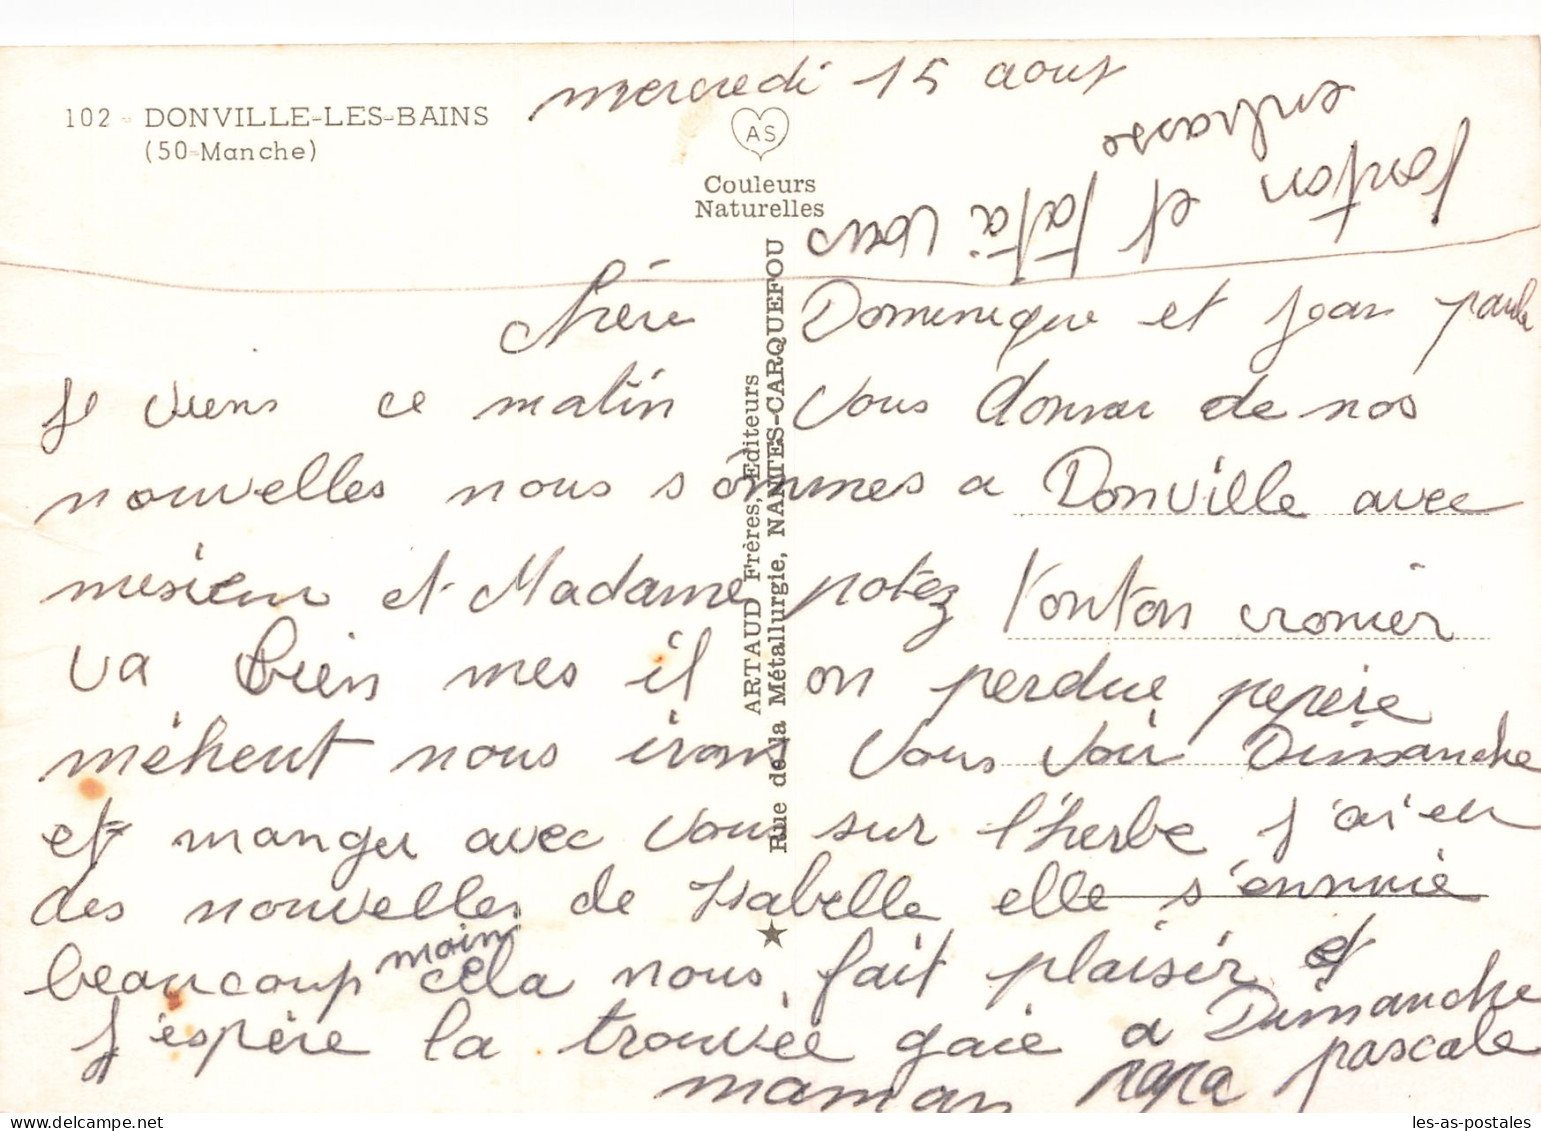 mercredi 15 aout
102 - DONVILLE-LES-BAINS
(50-Manche)
AS
Couleurs
Naturelles
tonton et tata vous
embrasse
ARTAUD Frères, Editeurs
Rue de la Métallurgie, NANTES-CARQUEFOU
chère Dominique et Jean paule
Je viens ce matin vous donner de nos
nouvelles nous sommes a Donville avec
mesieur et Madame potez tonton cronier
va bien mes il on perdue pepère
méhent nous irons vous voir Dimanche
et manger avec vous sur l'herbe j'ai eu
des nouvelles de Isabelle elle s'ennuie
beaucoup moin cela nous fait plaisir et
J'espère la trouvée gaie a Dimanche
maman papa pascale
les-as-postales